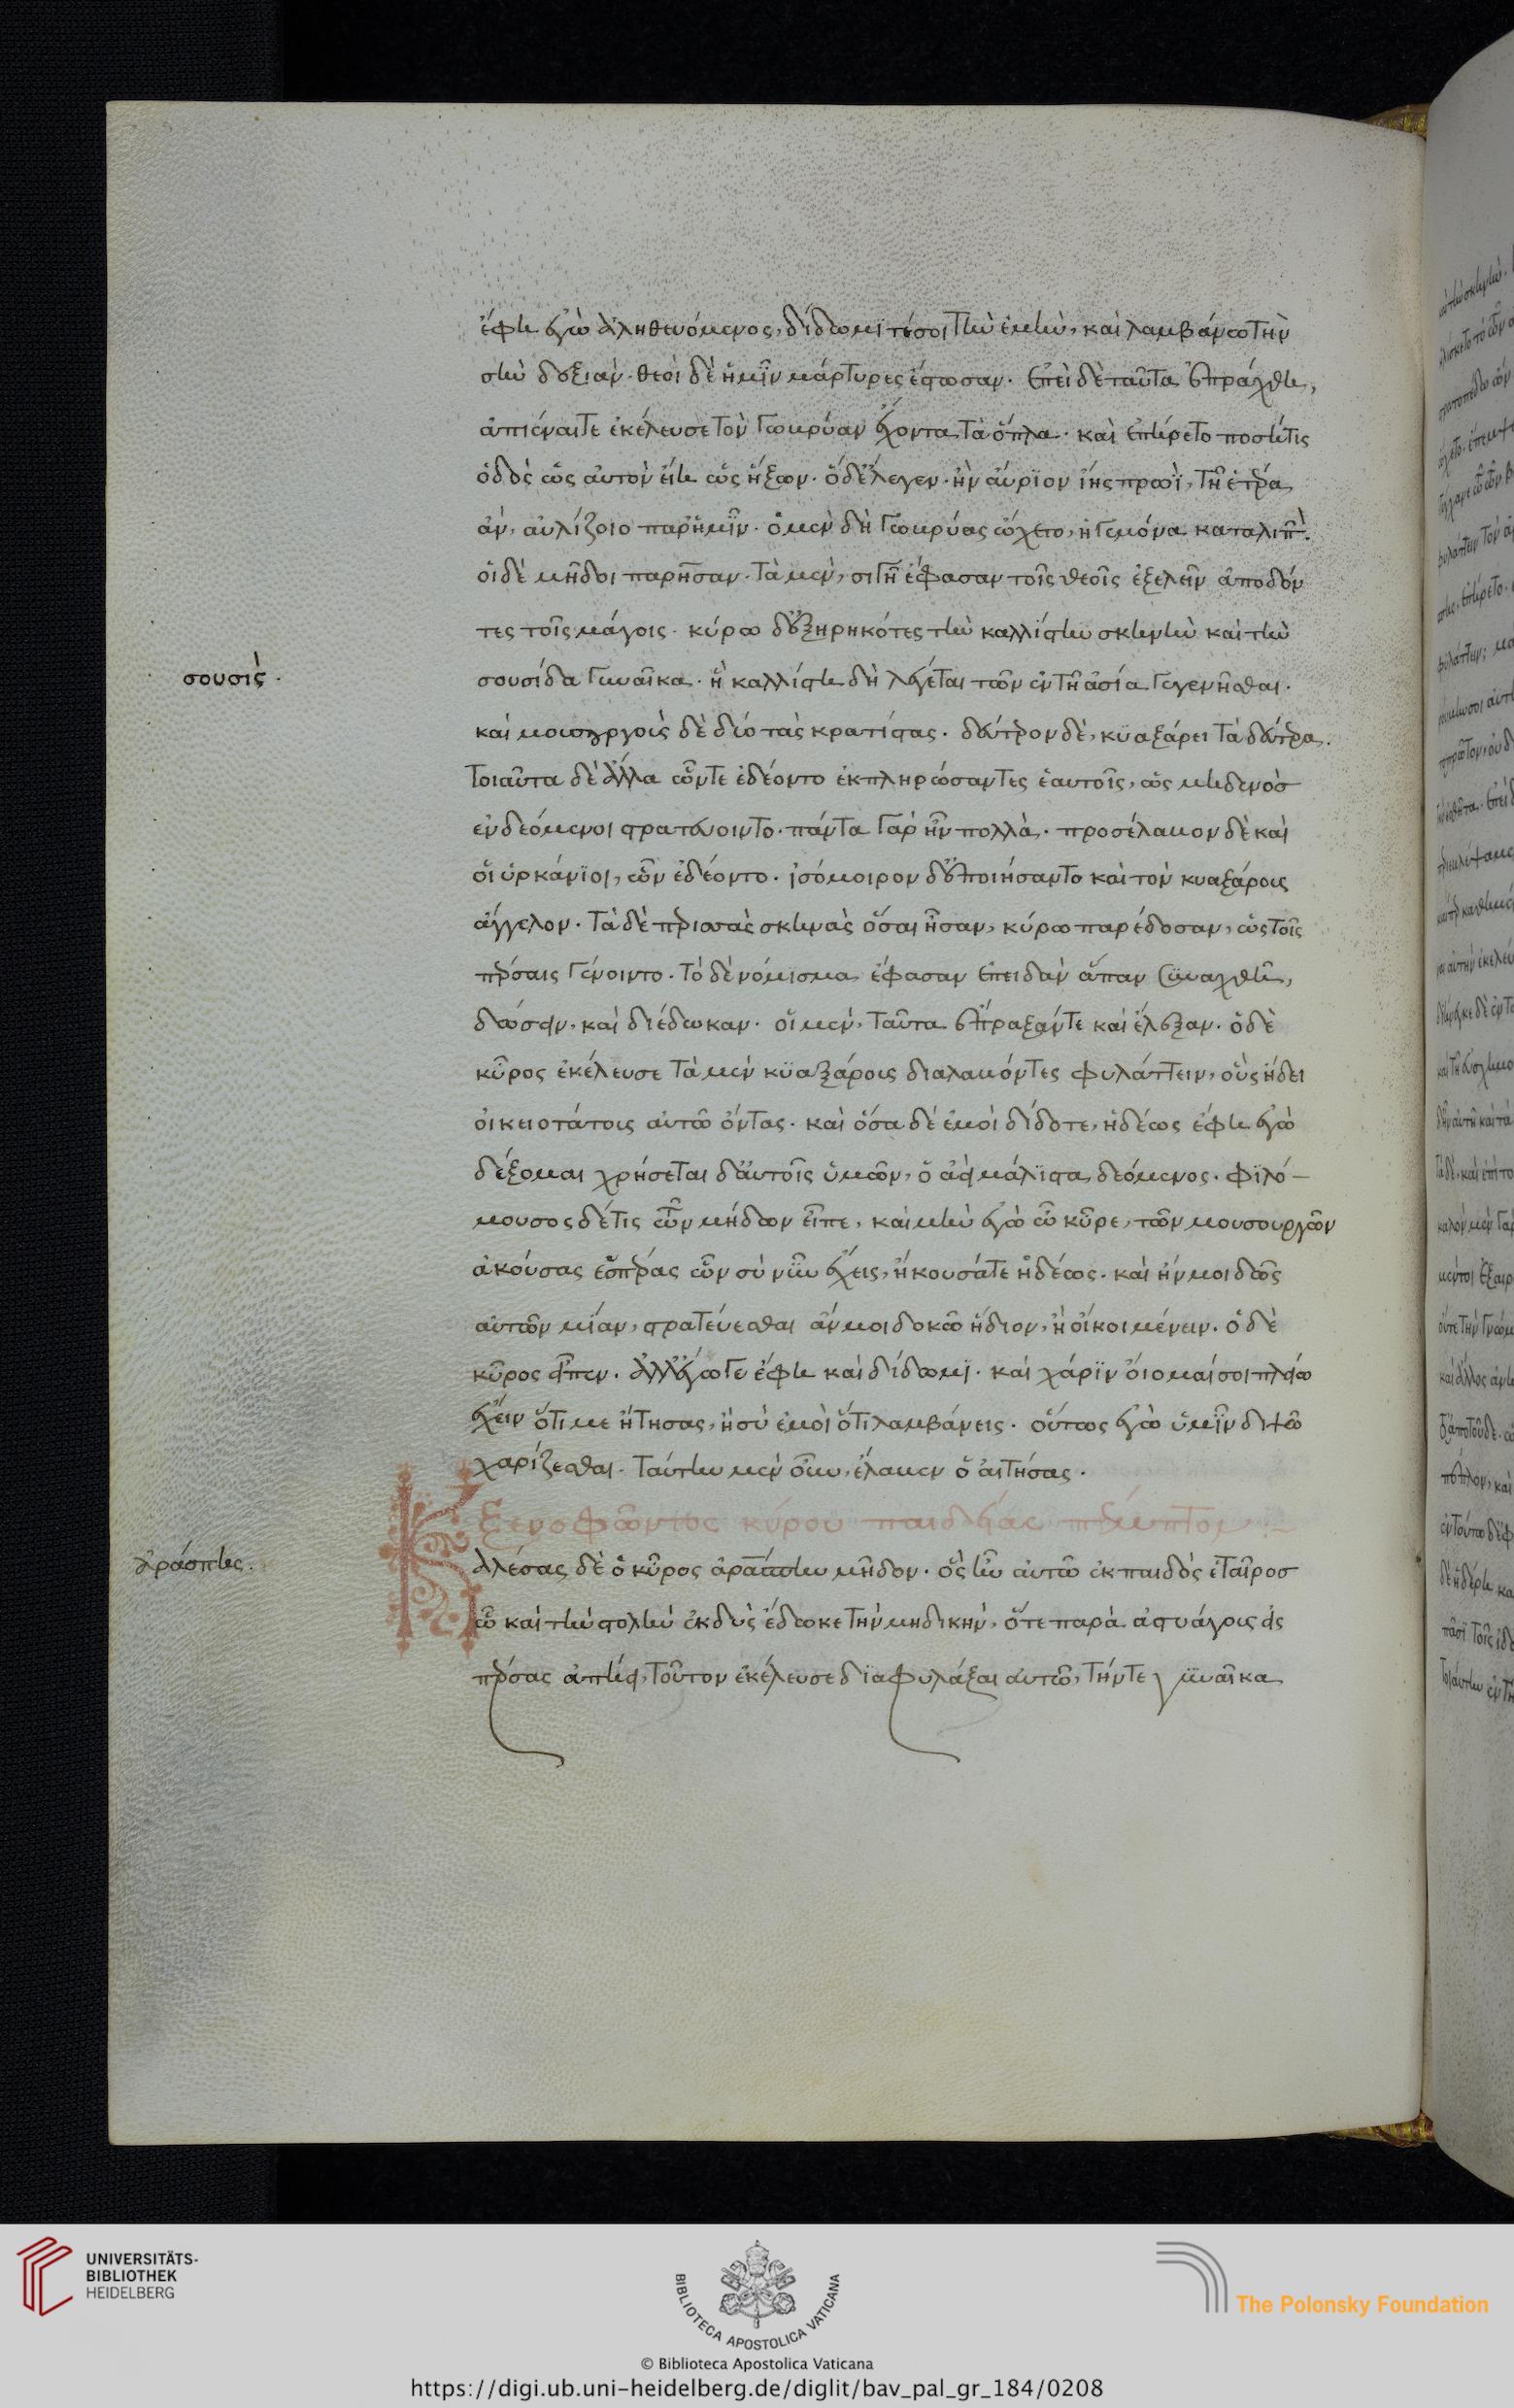 ἔφη ἐγὼ ἀληθευόμενος, δίδωμί τέ σοι τὴν ἐμὴν, καὶ λαμβάνω τὴν
σὴν δεξιάν. θεοὶ δὲ ἡμῖν μάρτυρες ἔστωσαν. ἐπεὶ δὲ ταῦτα ἐπράχθη,
ἀπιέναι τε ἐκέλευσε τὸν Γωβρύαν ἔχοντα τὰ ὅπλα. καὶ ἐπήρετο ποστή τις
ὁδὸς ὡς αὐτὸν εἴη ὡς ἥξων. ὁ δ' ἔλεγεν. ἢν αὔριον ἴῃς πρωὶ, τῇ ἑτέρᾳ
ἂν, αὐλίζοιο παρ' ἡμῖν. ὁ μὲν δὴ Γωβρύας ᾤχετο, ἡγεμόνα καταλιπὼν.
οἱ δὲ μῆδοι παρῆσαν. τὰ μὲν, σιγῇ ἔφασαν τοῖς θεοῖς ἐξελεῖν ἀποδόν
τες τοῖς μάγοις. κύρω δ' ἐξηρηκότες τὴν καλλίστην σκηνὴν καὶ τὴν
σουσὶς.
σουσίδα γυναῖκα. ἣ καλλίστη δὴ λέγεται τῶν ἐν τῇ ἀσία γεγενῆσθαι.
καὶ μουσουργοὺς δὲ δύο τὰς κρατίστας. δεύτερον δὲ, κυαξάρει τὰ δεύτερα.
τοιαῦτα δὲ ἄλλα ὧν τε ἐδέοντο ἐκπληρώσαντες ἑαυτοῖς, ὡς μηδενὸσ
ἐνδεόμενοι στρατεύοιντο. πάντα γὰρ ἦν πολλὰ. προσέλαβον δὲ καὶ
οἱ ὑρκάνιοι, ὧν ἐδέοντο. ἰσόμοιρον δ' ἐποιήσαντο καὶ τὸν κυαξάρους
ἄγγελον. τὰ δὲ περισσὰς σκηνὰς ὅσαι ἦσαν, κύρω παρέδοσαν, ὡς τοῖς
πέρσαις γένοιντο. τὸ δὲ νόμισμα ἔφασαν ἐπειδὰν ἅπαν συναχθῆ,
δώσειν. καὶ διέδωκαν. οἱ μὲν, ταῦτα ἔπραξάν τε καὶ ἔλεξαν. ὁ δὲ
κῦρος ἐκέλευσε τὰ μὲν κυαξάρους διαλαβόντες φυλάττειν, οὓς ἤδει
οἰκειοτάτους αὐτῶ ὄντας. καὶ ὅσα δέ ἐμοὶ δίδοτε, ἡδέως ἔφη ἐγὼ
δέξομαι χρήσεται δ' αὐτοῖς ὑμῶν, ὁ ἀεὶ μάλιστα δεόμενος. φιλό–
μουσος δέ τις τῶν μήδων εἶπε, καὶ μὴν ἐγὼ ὦ κῦρε, τῶν μουσουργῶν
ἀκούσας ἑσπέρας ὧν σὺ νῦν ἔχεις, ἤκουσά τε ἡδέως. καὶ ἤν μοι δῶς
αὐτῶν μίαν, στρατεύεσθαι ἄν μοι δοκῶ ἥδιον, ἢ οἴκοι μένειν. ὁ δὲ
κῦρος εἶπεν. ἀλλ' ἐγώ τε ἔφη καὶ δίδωμι. καὶ χάριν οἴομαί σοι πλείω
ἔχειν ὅτι με ᾔτησας, ἢ σὺ ἐμοὶ ὅτι λαμβάνεις. οὕτως ἐγὼ ὑμῖν διψῶ
χαρίζεσθαι. ταύτην μὲν οὖν, ἔλαβεν ὁ αἰτήσας.
ξενοφῶντος κύρου παιδείας πέμπτον :~
ἀράσπης.
Καλέσας δὲ ὁ κῦρος ἀράσπην μῆδον. ὃς ἦν αὐτῶ ἐκ παιδὸς ἑταῖροσ
ὧ καὶ τὴν στολὴν ἐκδὺς ἔδωκε τὴν μηδικὴν, ὅτε παρὰ ἀστυάγους εἰς
πέρσας ἀπήει, τοῦτον ἐκέλευσε διαφυλάξαι αὐτῶ, τήν τε γυναῖκα
UNIVERSITÄTS-
BIBLIOTHEK
HEIDELBERG
BIBLIOTECA APOSTOLICA VATICANA
The Polonsky Foundation
© Biblioteca Apostolica Vaticana
https://digi.ub.uni-heidelberg.de/diglit/bav_pal_gr_184/0208